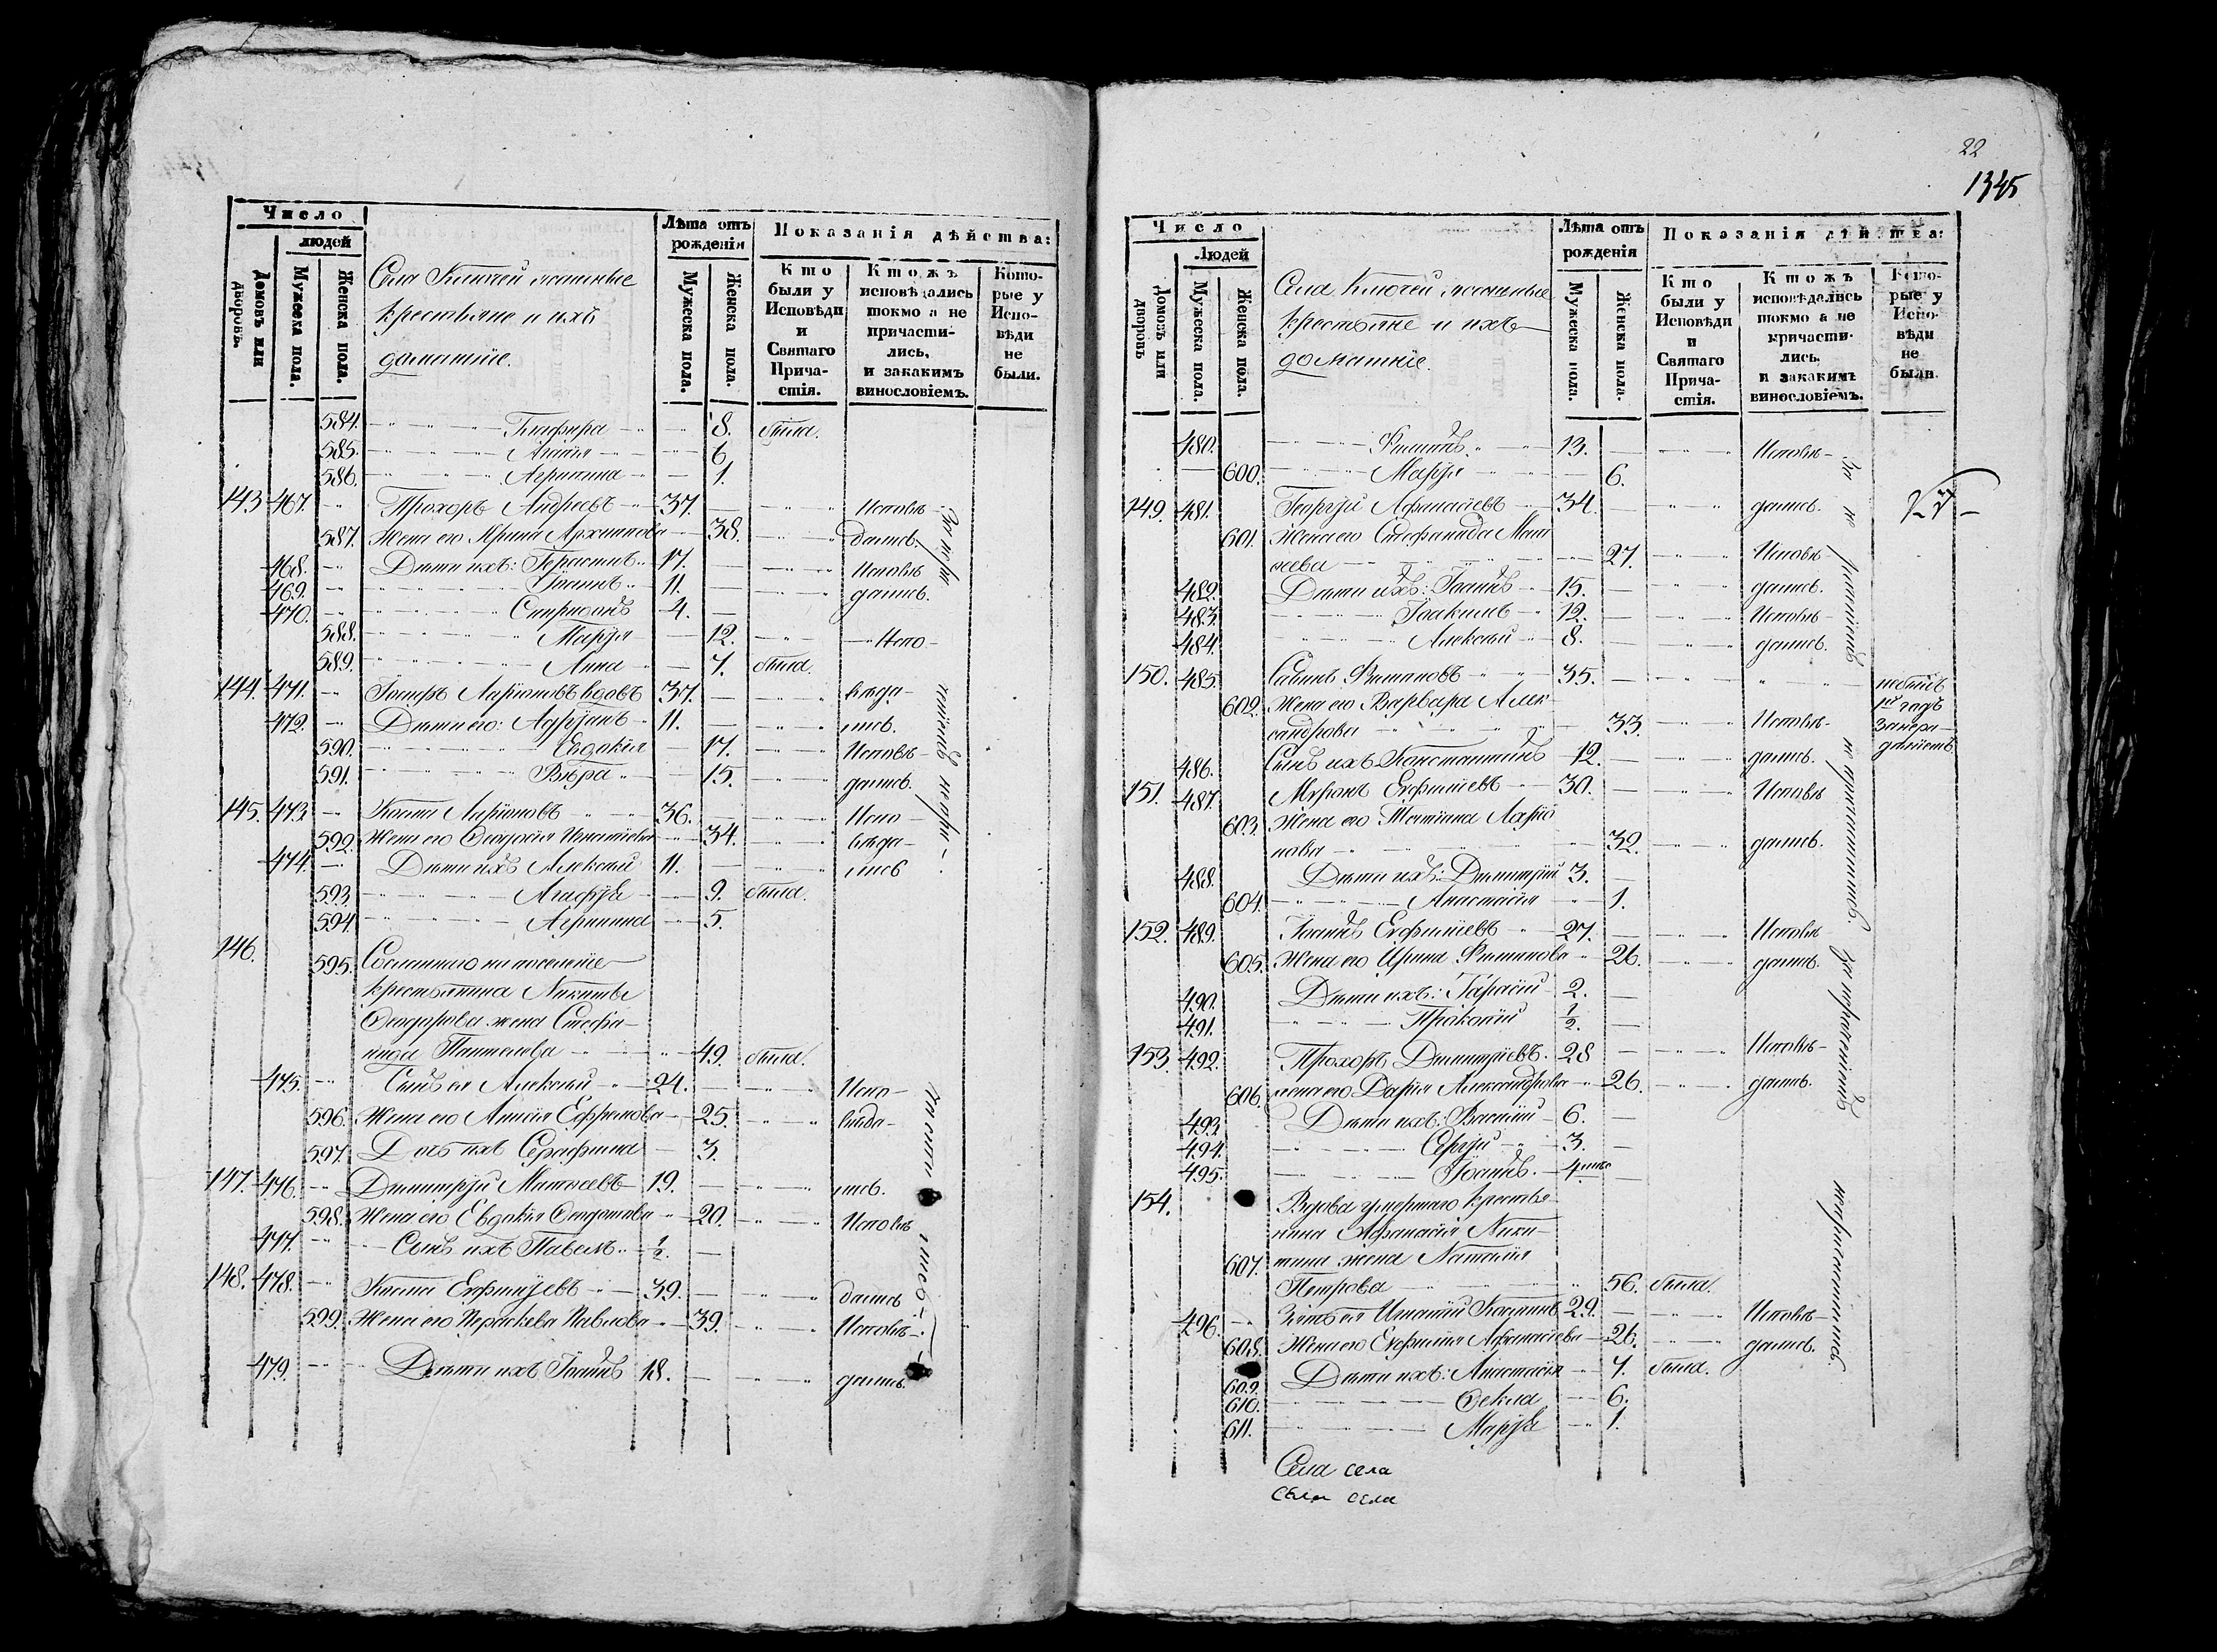 Число
людей
Домовъ или дворовъ.
Мужеска пола.
Женска пола.
Села Ключей ясашные
крестьяне и ихъ
домашніе.
Лѣта отъ рожденія
Мужеска пола.
Женска пола.
Показанія дѣйства:
Кто были у Исповѣди и Святаго Причастія.
Ктожъ исповѣдались токмо а не причастились, и закакимъ винословіемъ.
Которые у Исповѣди не были.
584. Глафира 8. была.
585. Агапія 6
586. Агрипина 1.
143 467. Прохоръ Андреевъ 37. Исповѣ-
587. Жена его Ирина Архипова 38. дались.
468. Дѣти ихъ: Герасимъ 17. Исповѣ
469. Іоаннъ 11. дались.
470. Спиридонъ 4.
588. Марія 12. Испо-
589. Анна 7. была.
144. 471. Ларіоновъ вдовъ 37. вѣда-
472. Дѣти его: Адріанъ 11. лись.
590. Евдокія 17. Исповѣ-
591. Вѣра 15. дались.
145. 473. Косма Ларіоновъ 36. Испо-
592. Жена его Феодосія Игнатіева 34. вѣда-
474. Дѣти ихъ Алексѣй 11. лись
593. Агафія 9. была.
594. Агрипина 5.
146.
595. Сосланнаго на поселеніе
крестьянина Никиты
Феодорова жена Стефа-
нида Пантелева 49. была.
475. Сынъ ея Алексѣй 24. Испо-
596. Жена его Анисія Ефремова 25. вѣда-
597. Дочь ихъ Серафима 3.
147. 476. Димитрій Матвеевъ 19. лись.
598. Жена его Евдокія Федотова 20. Исповѣ
477. Сынъ ихъ Павелъ 1/2.
148. 478. Косма Евфиміевъ 39. дались
599. Жена его Параскева Павлова 39. Исповѣ-
479. Дѣти ихъ Іоаннъ 18. дались.
22
1345
Число
Людей
Домовъ или дворовъ
Мужеска пола.
Женска пола.
Села Ключей ясашные
крестьяне и ихъ
домашніе.
Лѣта отъ рожденія
Мужеска пола.
Женска пола.
Показанія дѣйства:
Кто были у Исповѣди и Святаго Причастія.
Ктожъ исповѣдались токмо а не причастились, и закакимъ винословіемъ.
Которые у Исповѣди не были.
480. Филиппъ 13. Исповѣ-
600. Марія 6.
149. 481. Георгій Афанасіевъ 34. дались.
601. Жена его Стефанида Мат
веева 27. Исповѣ-
482. Дѣти ихъ: Іоаннъ 15. дались.
483. Іоакимъ 12. Исповѣ-
484. Алексѣй 8. дались.
150. 485. Савинъ Филиповъ 35. небылъ
602. Жена его Варвара Алек-
сандрова 33. Исповѣ-
486. Сынъ ихъ Константинъ 12. дались.
151. 487. Миронъ Евфиміевъ 30. Исповѣ
603. Жена его Татіана Ларіо
нова 32. дались.
488. Дѣти ихъ: Димитрій 3.
604. Анастасія 1.
152. 489. Іоаннъ Евфиміевъ 27. Исповѣ
605. Жена его Ирина Филипова 26. дались.
490. Дѣти ихъ: Тарасій 2.
491. Прокопій 1/2.
153. 492. Прохоръ Димитріевъ. 28 Исповѣ-
606. жена его Дарія Александрова 26. дались.
493. Дѣти ихъ: Василій 6.
494. Сергій 3.
495. Іоаннъ. 4
154. Вдова умершаго крестья
нина Афанасія Ники-
607. тина жена Наталія
Петрова 56. была.
496. Зять ея Игнатій Косминъ 29. Исповѣ-
608. Жена его Евфимія Афанасіева 26. дались.
609. Дѣти ихъ: Анастасія 7. была.
610. Фекла 6.
611. Марія 1.
Села села
села села